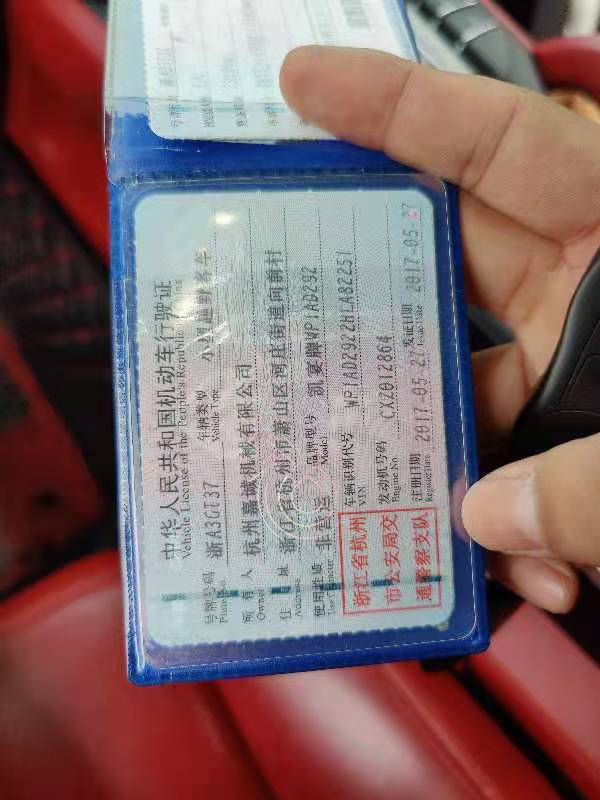 中华人民共和国机动车行驶证
Vehicle License of the People's Republic of China
号牌号码 浙A3GT37 车辆类型 小型越野客车
Plate No. Vehicle Type
所有人 杭州嘉诚机械有限公司
Owner
住址 浙江省杭州市萧山区河庄街道向前村
Address
使用性质 非营运 品牌型号 凯宴牌WP1AD292
Use Character Model
车辆识别代号 WP1AD2922HLA82251
VIN
发动机号码 CXZ012864
Engine No.
注册日期 2017-05-27 发证日期 2017-05-27
Register Date Issue Date
浙江省杭州
市公安局交
通警察支队